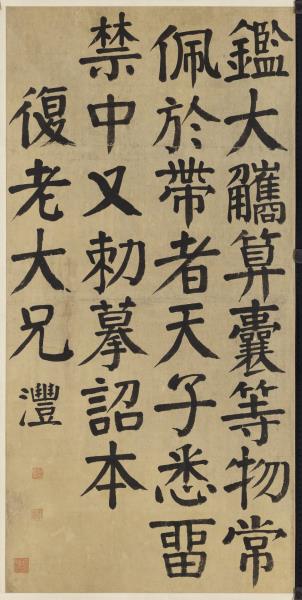 鑑大觿算囊等物常
佩於帶者天子悉畱
禁中又勑摹詔本
復老大兄
灃